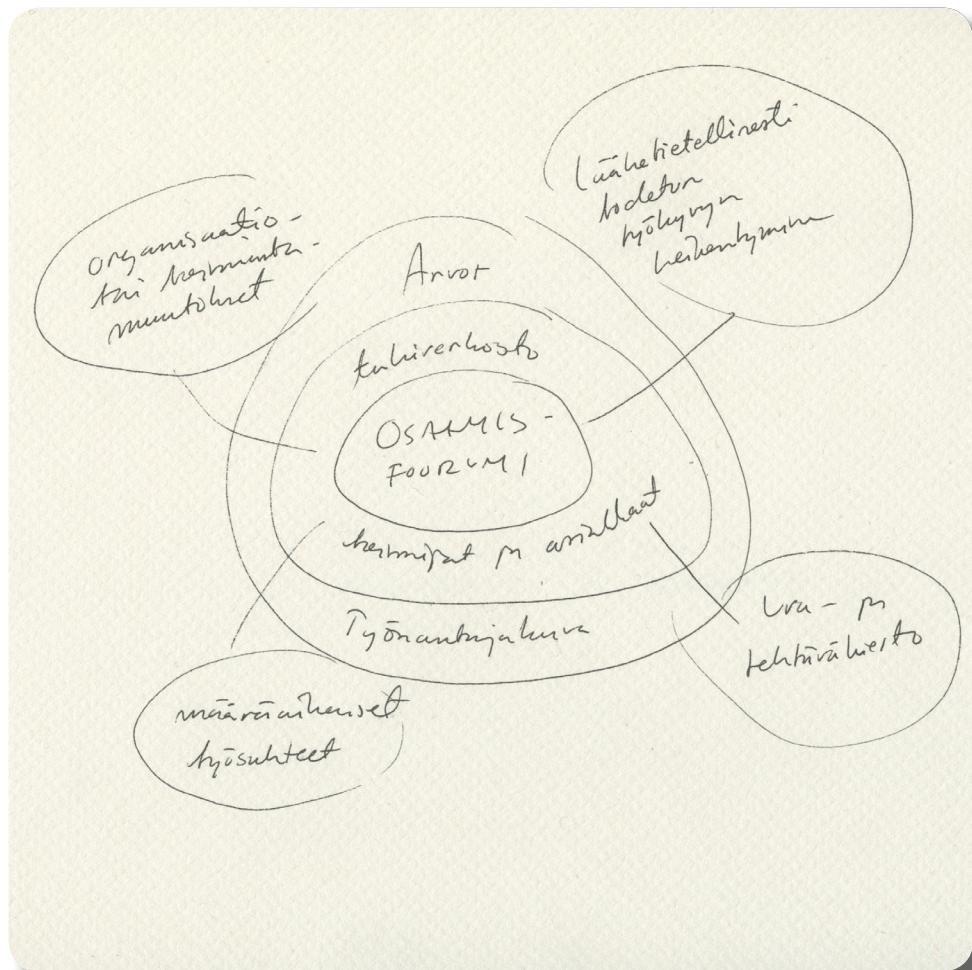 organisaatio-
tai toiminta-
muutokset
Lääketietellisesti
todetun
työkyvyn
heikentyminen
Arvot
tukiverkosto
OSAAMIS-
FOORUMI
ja asiakkaat
Työnantajakuva
Ura- ja
tehtäväkierto
määräaikaiset
työsuhteet